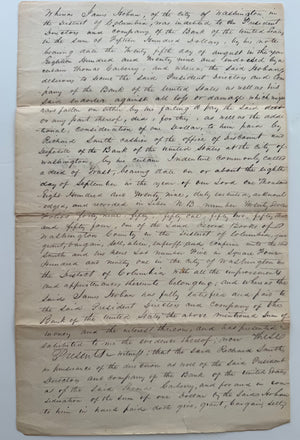 Whereas James Hoban, of the city of Washington in
the District of Columbia, was indebted to the President
Directors and company of the Bank of the United States,
in the sum of Fifteen Hundred Dollars, by his note
bearing date the Twenty fifth day of August in the year
Eighteen Hundred and Twenty nine and endorsed by a
certain Thomas Carbery, and where the said Hoban
desirous to secure the said President Directors and Com-
pany of the Bank of the United States as well as his
said endorser against all loss or damage which might
arise from his failure to pay the said
or any part thereof; did, for this, as well as the addi-
tional, consideration of one Dollar, to him paid by
Richard Smith cashier of the office of discount and
deposite of the Bank of the United States at the city of
Washington, by his certain Indenture commonly called
a deed of Trust, bearing date on or about the eighth
day of September in the year of our Lord one Thousand
Eight Hundred and Twenty Nine, duly executed, acknowl-
edged, and recorded in Liber W. B. number Twenty Seven
forty nine, fifty, fifty one, fifty two, fifty three
and fifty four, of the Land Record Books of
Washington County in the District of Columbia, give
grant, bargain, sell, alien, enfeoff and confirm unto the said
Smith and his heirs Lot number Five in Square Four
Hundred and Ninety one in the city of Washington in
the District of Columbia with all the improvements
and appurtenances thereto belonging; and whereas the
said James Hoban has fully satisfied and paid to
the said President Directors and Company of the
Bank of the United States, the above mentioned Sum of
money and the interest thereon, and has presented &
exhibited to me the evidence thereof; now These
Presents witness; that the said Richard Smith,
in pursuance of the direction as well of the said President
Directors and company of the Bank of the United States,
as of the said Thomas Carbery, and for and in con-
sideration of the sum of one Dollar by the said Hoban
to him in hand paid doth give, grant, bargain, sell,